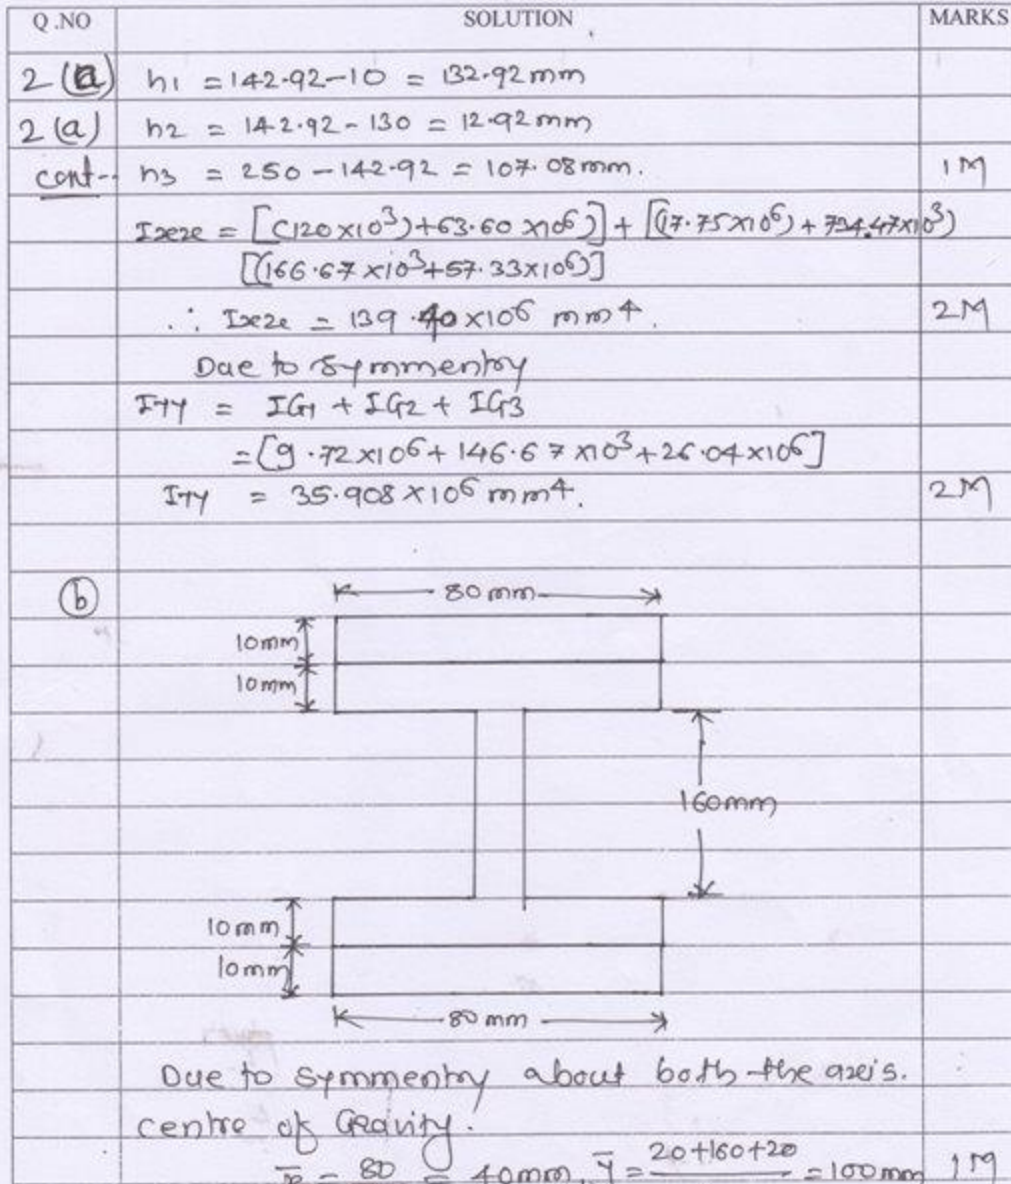 Q.NO SOLUTION MARKS
2 (a) h1 = 142.92-10 = 132.92mm
2 (a) h2 = 142.92-130 = 12.92mm
cont-- h3 = 250-142.92 = 107.08mm. 1M
Ixx = [(120×10³)+63.60×10⁶)] + [(17.75×10⁶)+734.47×10³)
[(166.67×10³+57.33×10⁶)]
∴ Ixx = 139.40×10⁶ mm⁴. 2M
Due to symmentry
IYY = IG1 + IG2 + IG3
= [9.72×10⁶+146.67×10³+26.04×10⁶]
IYY = 35.908×10⁶ mm⁴. 2M
(b) 80mm
10mm
10mm
160mm
10mm
10mm
80mm
Due to symmentry about both the axis.
centre of Gravity.
x̄ = 80 = 40mm, ȳ = 20+160+20 = 100mm 1M